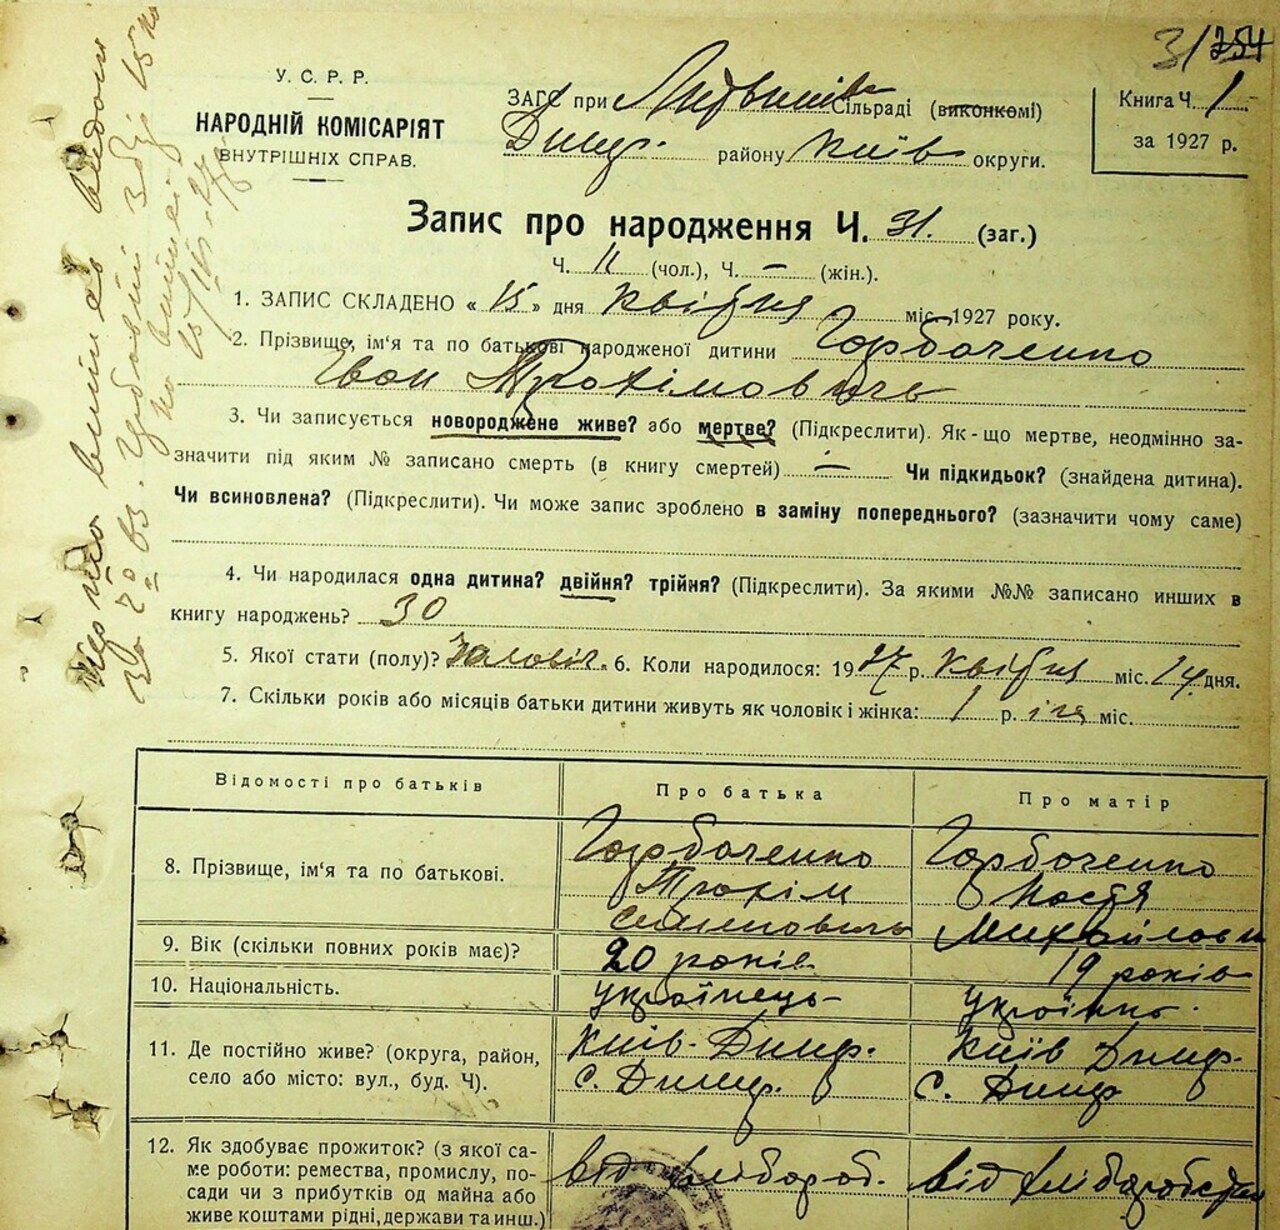 31/254
У. С. Р. Р.
НАРОДНІЙ КОМІСАРІЯТ
ВНУТРІШНІХ СПРАВ.
ЗАГС при Литвинів Сільраді (виконкомі)
Димер. району Київ округи.
Книга Ч. 1
за 1927 р.
Запис про народження Ч. 31. (заг.)
Ч. 11 (чол.), Ч. — (жін.).
1. ЗАПИС СКЛАДЕНО « 15 » дня квітня міс. 1927 року.
2. Прізвище, ім'я та по батькові народженої дитини Горбаченко
Іван Трохімовичь
3. Чи записується новороджене живе? або мертве? (Підкреслити). Як-що мертве, неодмінно за-
значити під яким № записано смерть (в книгу смертей) — Чи підкидьок? (знайдена дитина).
Чи всиновлена? (Підкреслити). Чи може запис зроблено в заміну попереднього? (зазначити чому саме)
4. Чи народилася одна дитина? двійня? трійня? (Підкреслити). За якими №№ записано инших в
книгу народжень? 30
5. Якої стати (полу)? чоловіч. 6. Коли народилося: 1927 р. квітня міс. 14 дня.
7. Скільки років або місяців батьки дитини живуть як чоловік і жінка: 1 р. міс.
Відомості про батьків
Про батька
Про матір
8. Прізвище, ім'я та по батькові.
Горбаченко
Трохім
Семеновичь
Горбаченко
Настя
Михайловн
9. Вік (скільки повних років має)?
20 років
19 років
10. Національність.
українець
українка
11. Де постійно живе? (округа, район,
село або місто: вул., буд. Ч).
Київ. Димер.
с. Димер.
Київ Димер.
с. Димер
12. Як здобуває прожиток? (з якої са-
ме роботи: ремества, промислу, по-
сади чи з прибутків од майна або
живе коштами рідні, держави та инш.)
від хлібороб.
від хліборобства